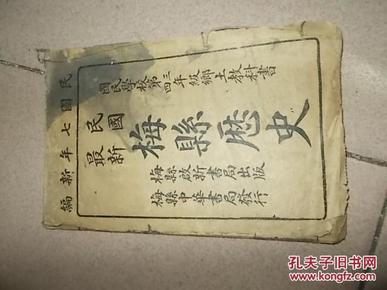 民國七年新編
國民學校第三四年級鄉土教科書
民國最新
梅縣歷史
梅縣啟新書局出版
梅縣中華書局發行
孔夫子旧书网